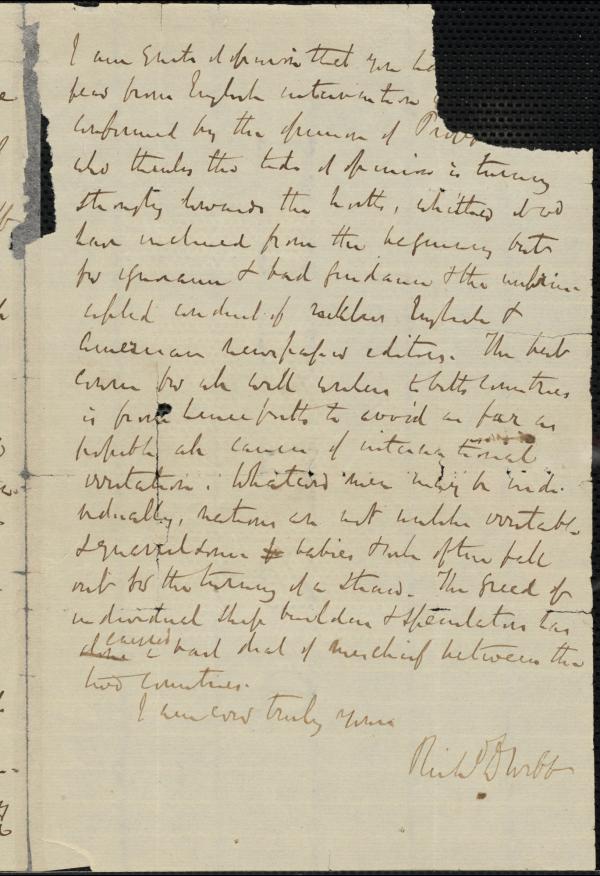 I am quite of opinion that you ha
fear from English intervention
confirmed by the opinion of Prof
who thinks the tide of opinion is turning
strongly towards the North, whither it wd
have inclined from the beginning but
for ignorance & bad guidance & the unprin-
cipled conduct of reckless English &
American newspaper editors. The best
course for all well wishers to both countries
is from henceforth to avoid as far as
possible all causes of international
irritation. Whatever men may be indi-
vidually, nations are not unlike irritable
& quarrelsome babies & will often fall
out for the turning of a straw. The greed of
individual ship builders & speculators has
caused
done a bad deal of mischief between the
two countries.
I am evr truly yours
Richd D Webb